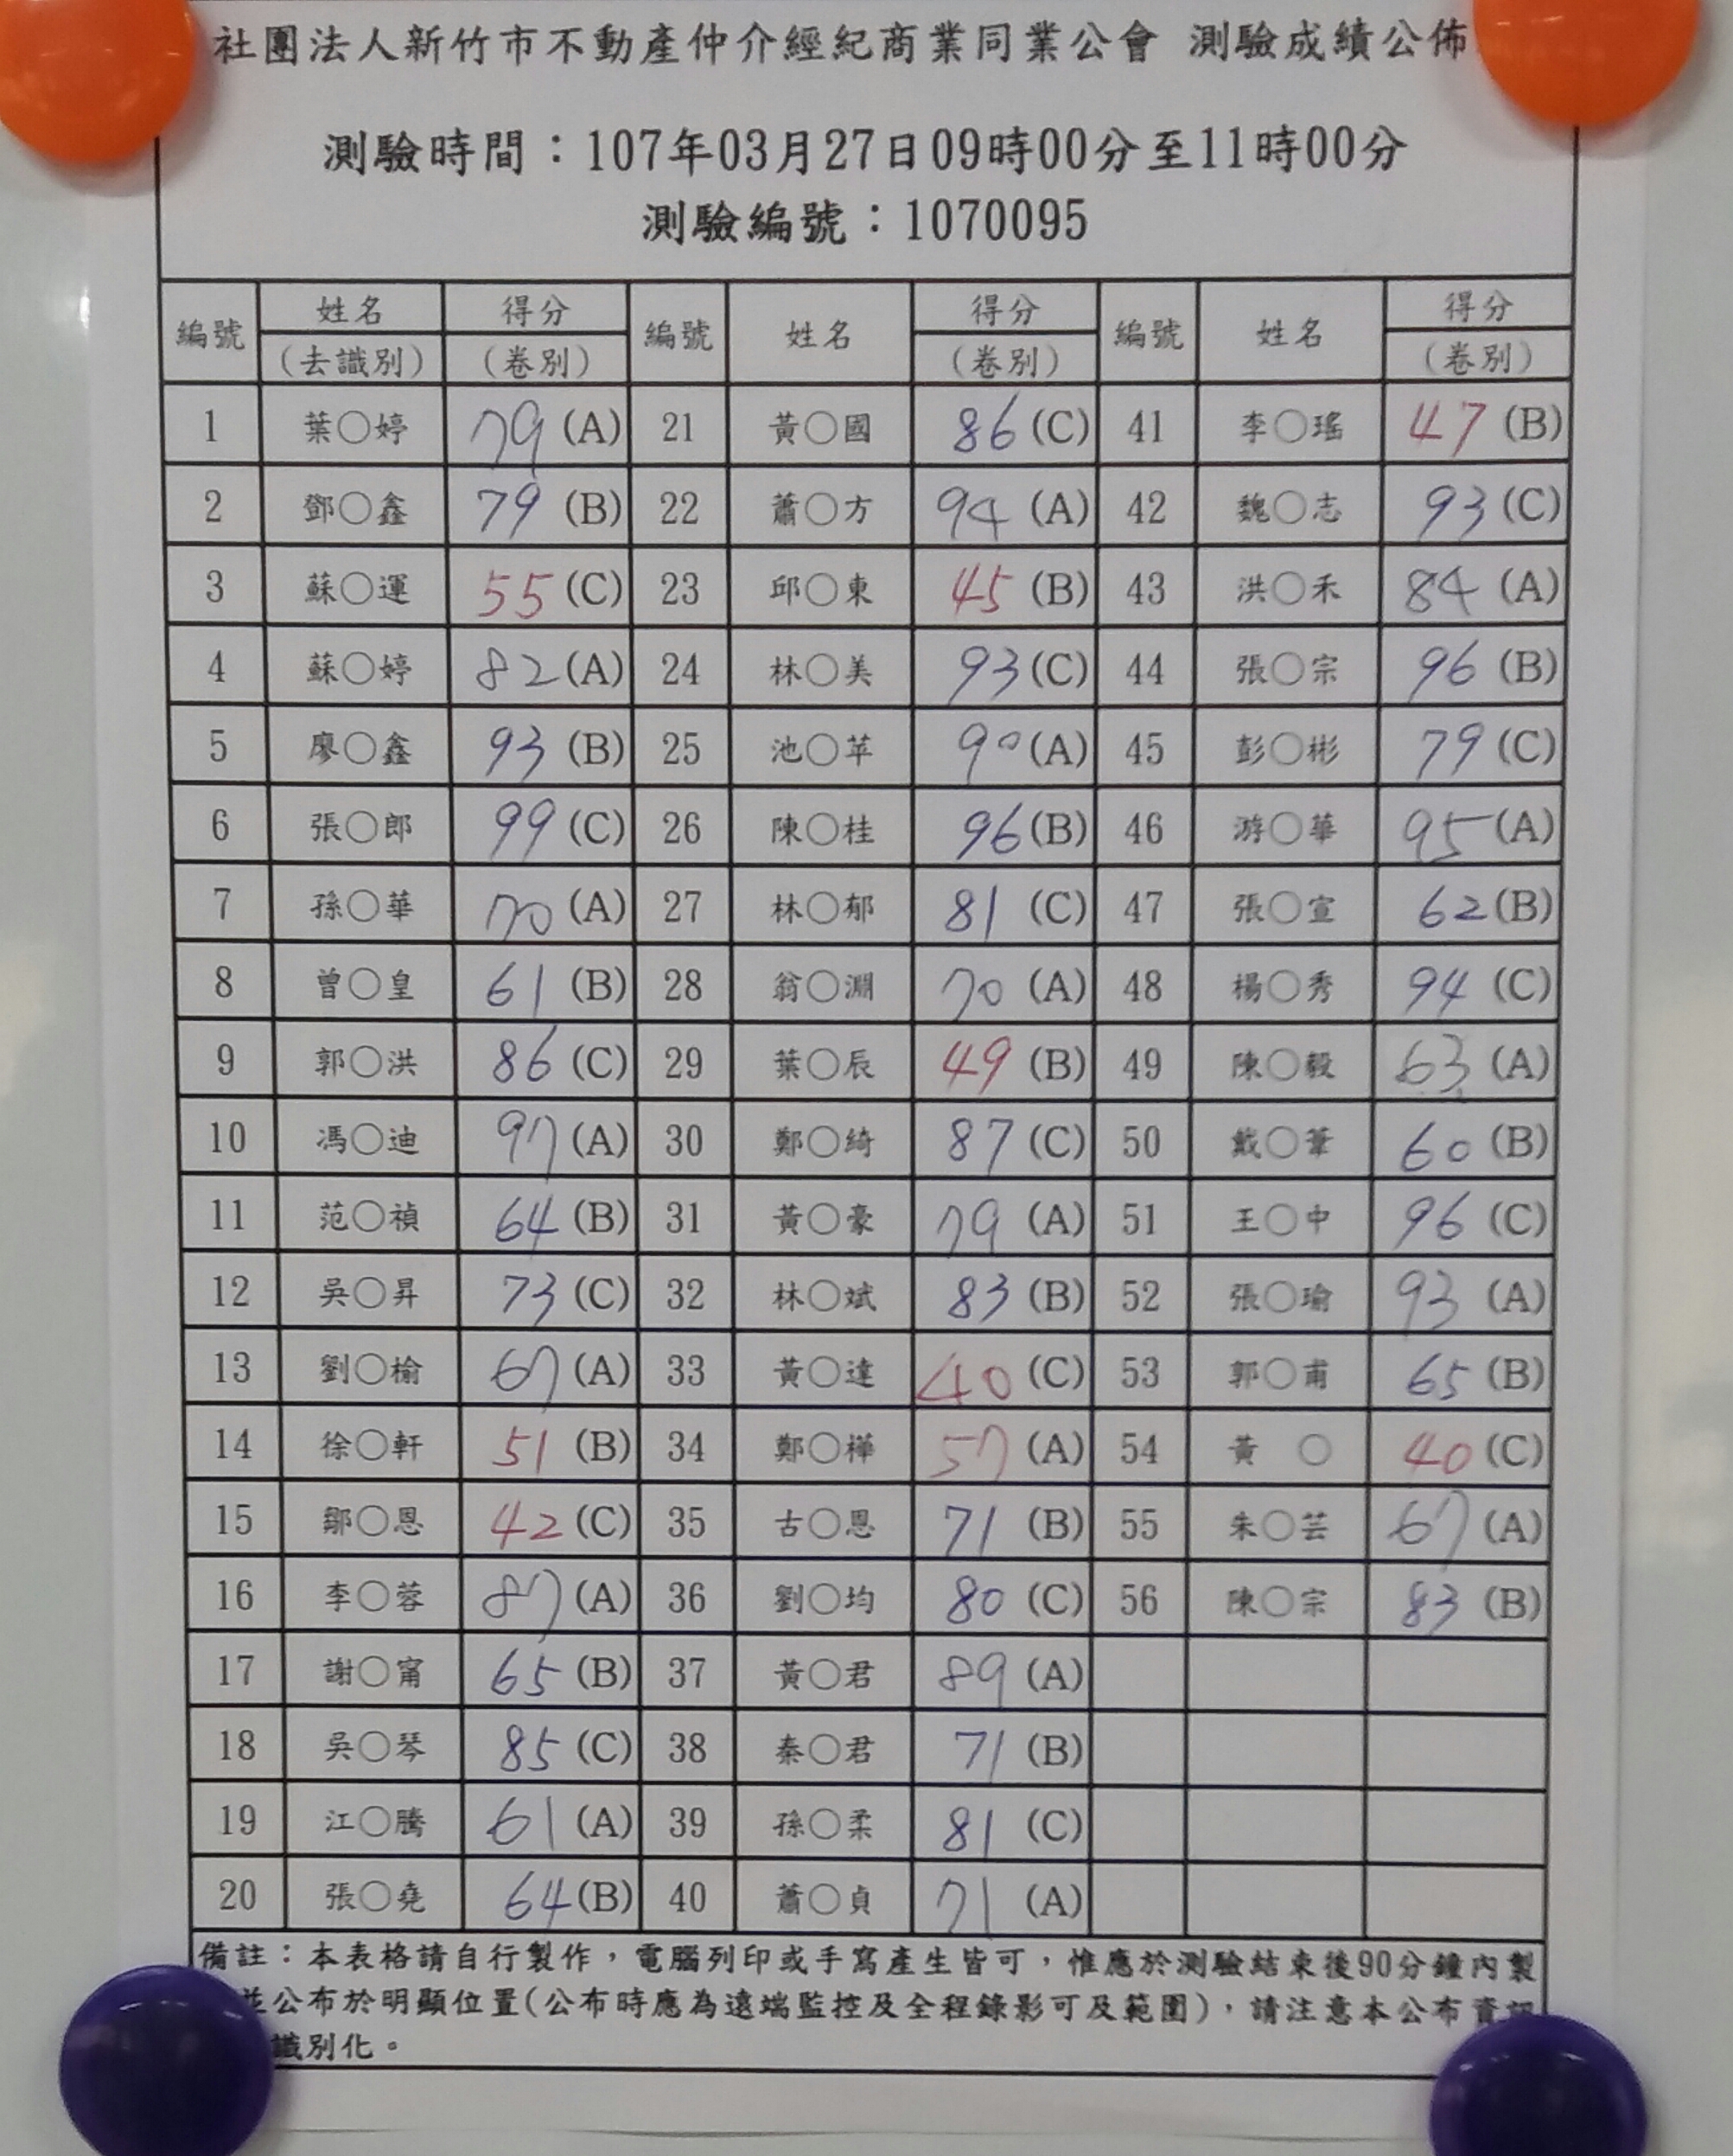 社團法人新竹市不動產仲介經紀商業同業公會 測驗成績公佈
測驗時間：107年03月27日09時00分至11時00分
測驗編號：1070095
編號 姓名 得分 編號 姓名 得分 編號 姓名 得分
(去識別) (卷別) (卷別) (卷別)
1 葉○婷 79 (A) 21 黃○國 86 (C) 41 李○瑤 47 (B)
2 鄧○鑫 79 (B) 22 蕭○方 94 (A) 42 魏○志 93 (C)
3 蘇○運 55 (C) 23 邱○東 45 (B) 43 洪○禾 84 (A)
4 蘇○婷 82 (A) 24 林○美 93 (C) 44 張○宗 96 (B)
5 廖○鑫 93 (B) 25 池○苹 90 (A) 45 彭○彬 79 (C)
6 張○郎 99 (C) 26 陳○桂 96 (B) 46 游○華 95 (A)
7 孫○華 70 (A) 27 林○郁 81 (C) 47 張○宣 62 (B)
8 曾○皇 61 (B) 28 翁○淵 70 (A) 48 楊○秀 94 (C)
9 郭○洪 86 (C) 29 葉○辰 49 (B) 49 陳○毅 63 (A)
10 馮○迪 97 (A) 30 鄭○綺 87 (C) 50 戴○葦 60 (B)
11 范○禎 64 (B) 31 黃○豪 79 (A) 51 王○中 96 (C)
12 吳○昇 73 (C) 32 林○斌 83 (B) 52 張○瑜 93 (A)
13 劉○榆 67 (A) 33 黃○達 40 (C) 53 郭○甫 65 (B)
14 徐○軒 51 (B) 34 鄭○樺 57 (A) 54 黃 ○ 40 (C)
15 鄒○恩 42 (C) 35 古○恩 71 (B) 55 朱○芸 67 (A)
16 李○蓉 87 (A) 36 劉○均 80 (C) 56 陳○宗 83 (B)
17 謝○甯 65 (B) 37 黃○君 89 (A)
18 吳○琴 85 (C) 38 秦○君 71 (B)
19 江○騰 61 (A) 39 孫○柔 81 (C)
20 張○堯 64 (B) 40 蕭○貞 71 (A)
備註：本表格請自行製作，電腦列印或手寫產生皆可，惟應於測驗結束後90分鐘內製
並公布於明顯位置(公布時應為遠端監控及全程錄影可及範圍)，請注意本公布資訊
識別化。